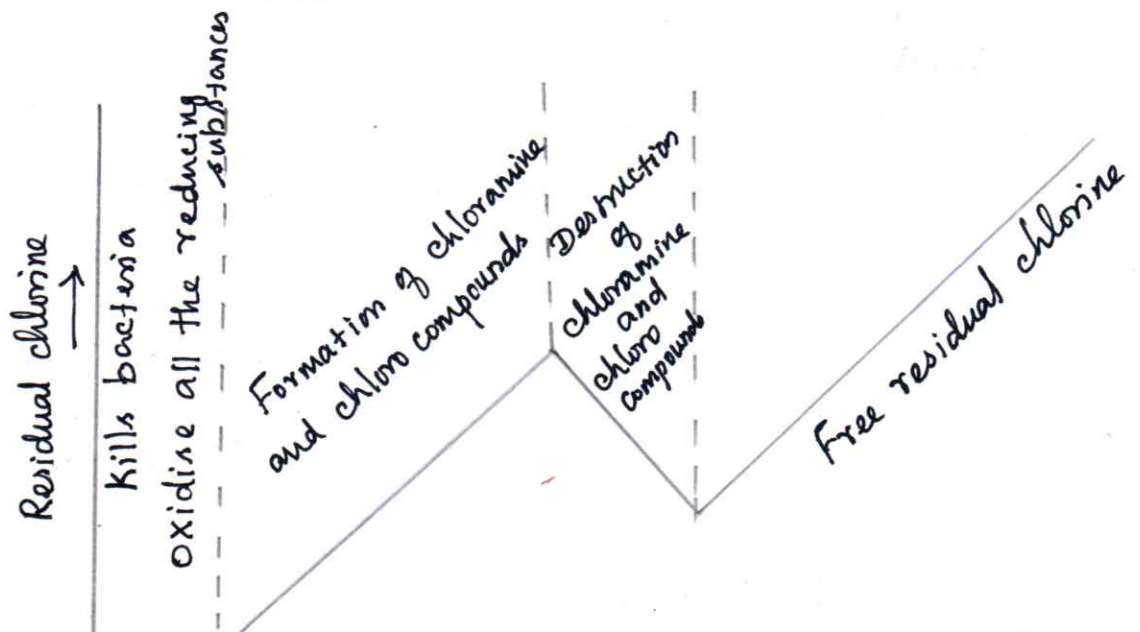 Residual chlorine
Kills bacteria
oxidise all the reducing
substances
Formation of chloramine
and chloro compounds
Destruction
of
chloramine
and
chloro
compounds
Free residual chlorine